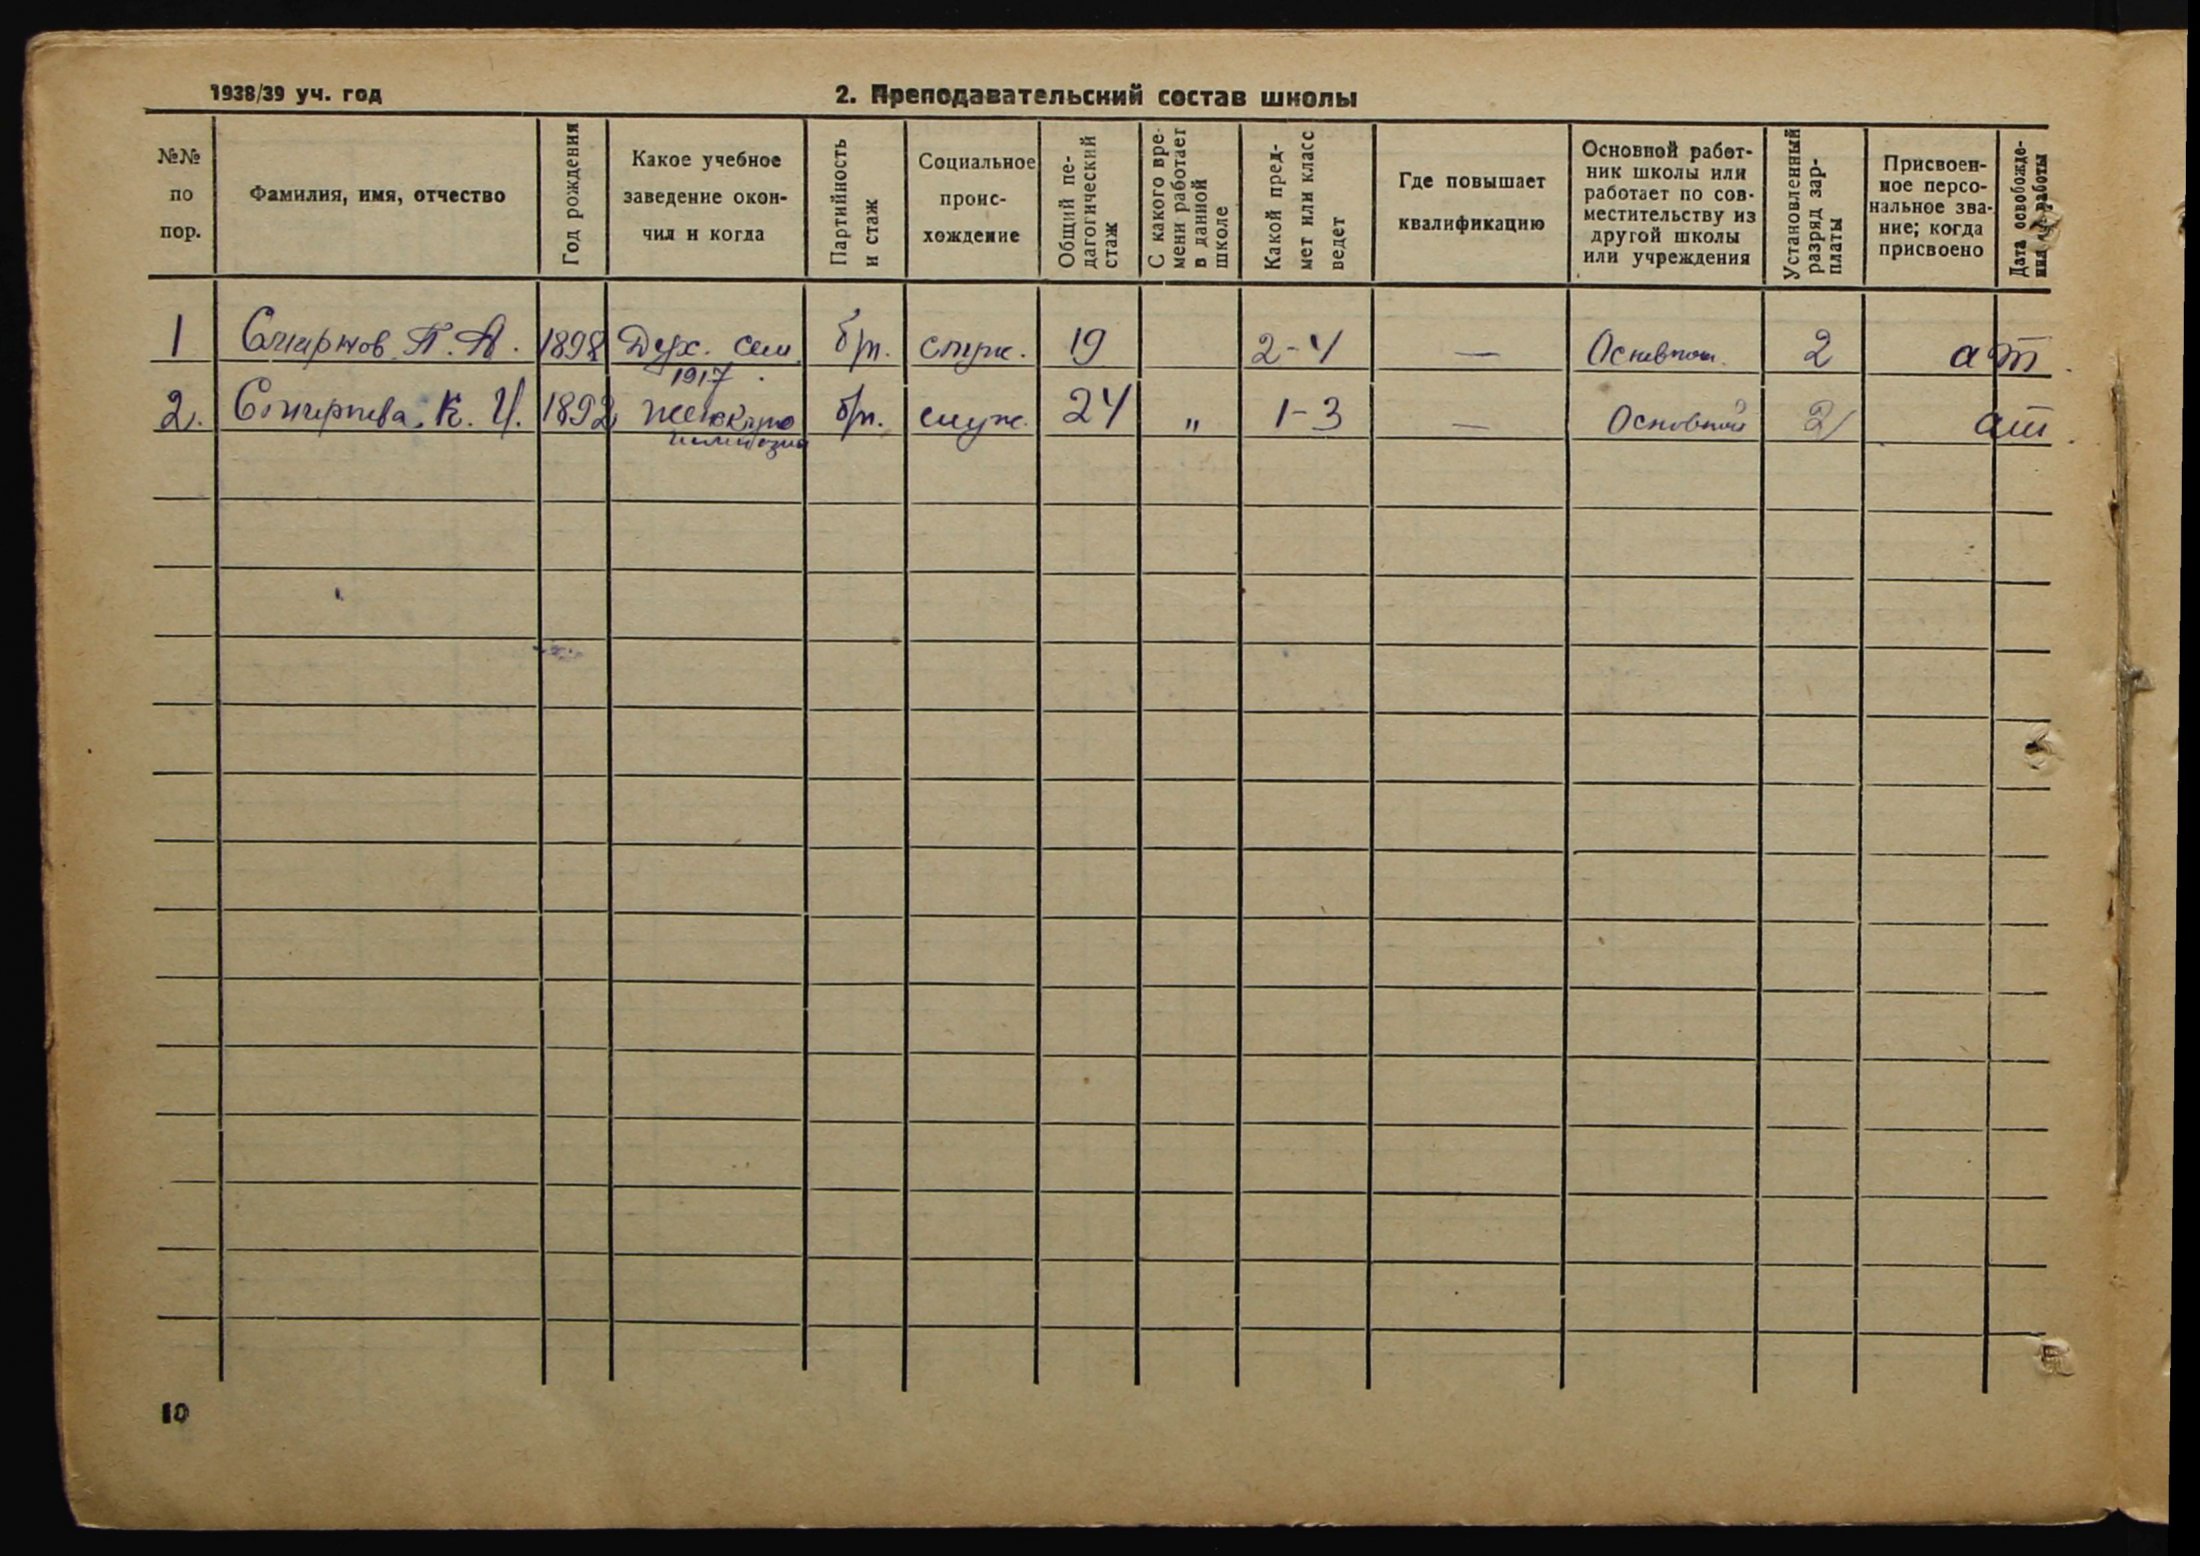 1938/39 уч. год
2. Преподавательский состав школы
№№ по пор.
Фамилия, имя, отчество
Год рождения
Какое учебное заведение окончил и когда
Партийность и стаж
Социальное происхождение
Общий педагогический стаж
С какого времени работает в данной школе
Какой предмет или класс ведет
Где повышает квалификацию
Основной работник школы или работает по совместительству из другой школы или учреждения
Установленный разряд зарплаты
Присвоенное персональное звание; когда присвоено
Дата освобождения работы
1 Смирнов П. А. 1898 Дух. сем. 1917 б/п. служ. 19 2-4 — Основной 2 ат.
2. Смирнова К. И. 1892 Женскую гимназию б/п. служ. 24 " 1-3 — Основной 2 ат.
10